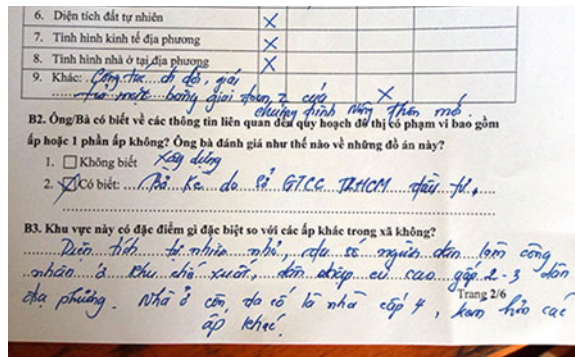 6. Diện tích đất tự nhiên X
7. Tình hình kinh tế địa phương X
8. Tình hình nhà ở tại địa phương X
9. Khác: Công tác di dời, giải X
tỏa mặt bằng giai đoạn 2 của
chương trình nông thôn mới.
B2. Ông/Bà có biết về các thông tin liên quan đến quy hoạch đô thị có phạm vi bao gồm
ấp hoặc 1 phần ấp không? Ông bà đánh giá như thế nào về những đồ án này?
1. Không biết Xây dựng
2. X Có biết: Bờ Kè do Sở GTCC TPHCM đầu tư.
B3. Khu vực này có đặc điểm gì đặc biệt so với các ấp khác trong xã không?
Diện tích tự nhiên nhỏ, đa số người dân làm công
nhân ở khu chế xuất, dân nhập cư cao gấp 2-3 dân
địa phương. Nhà ở còn đa số là nhà cấp 4, kém hơn các
Trang 2/6
ấp khác.